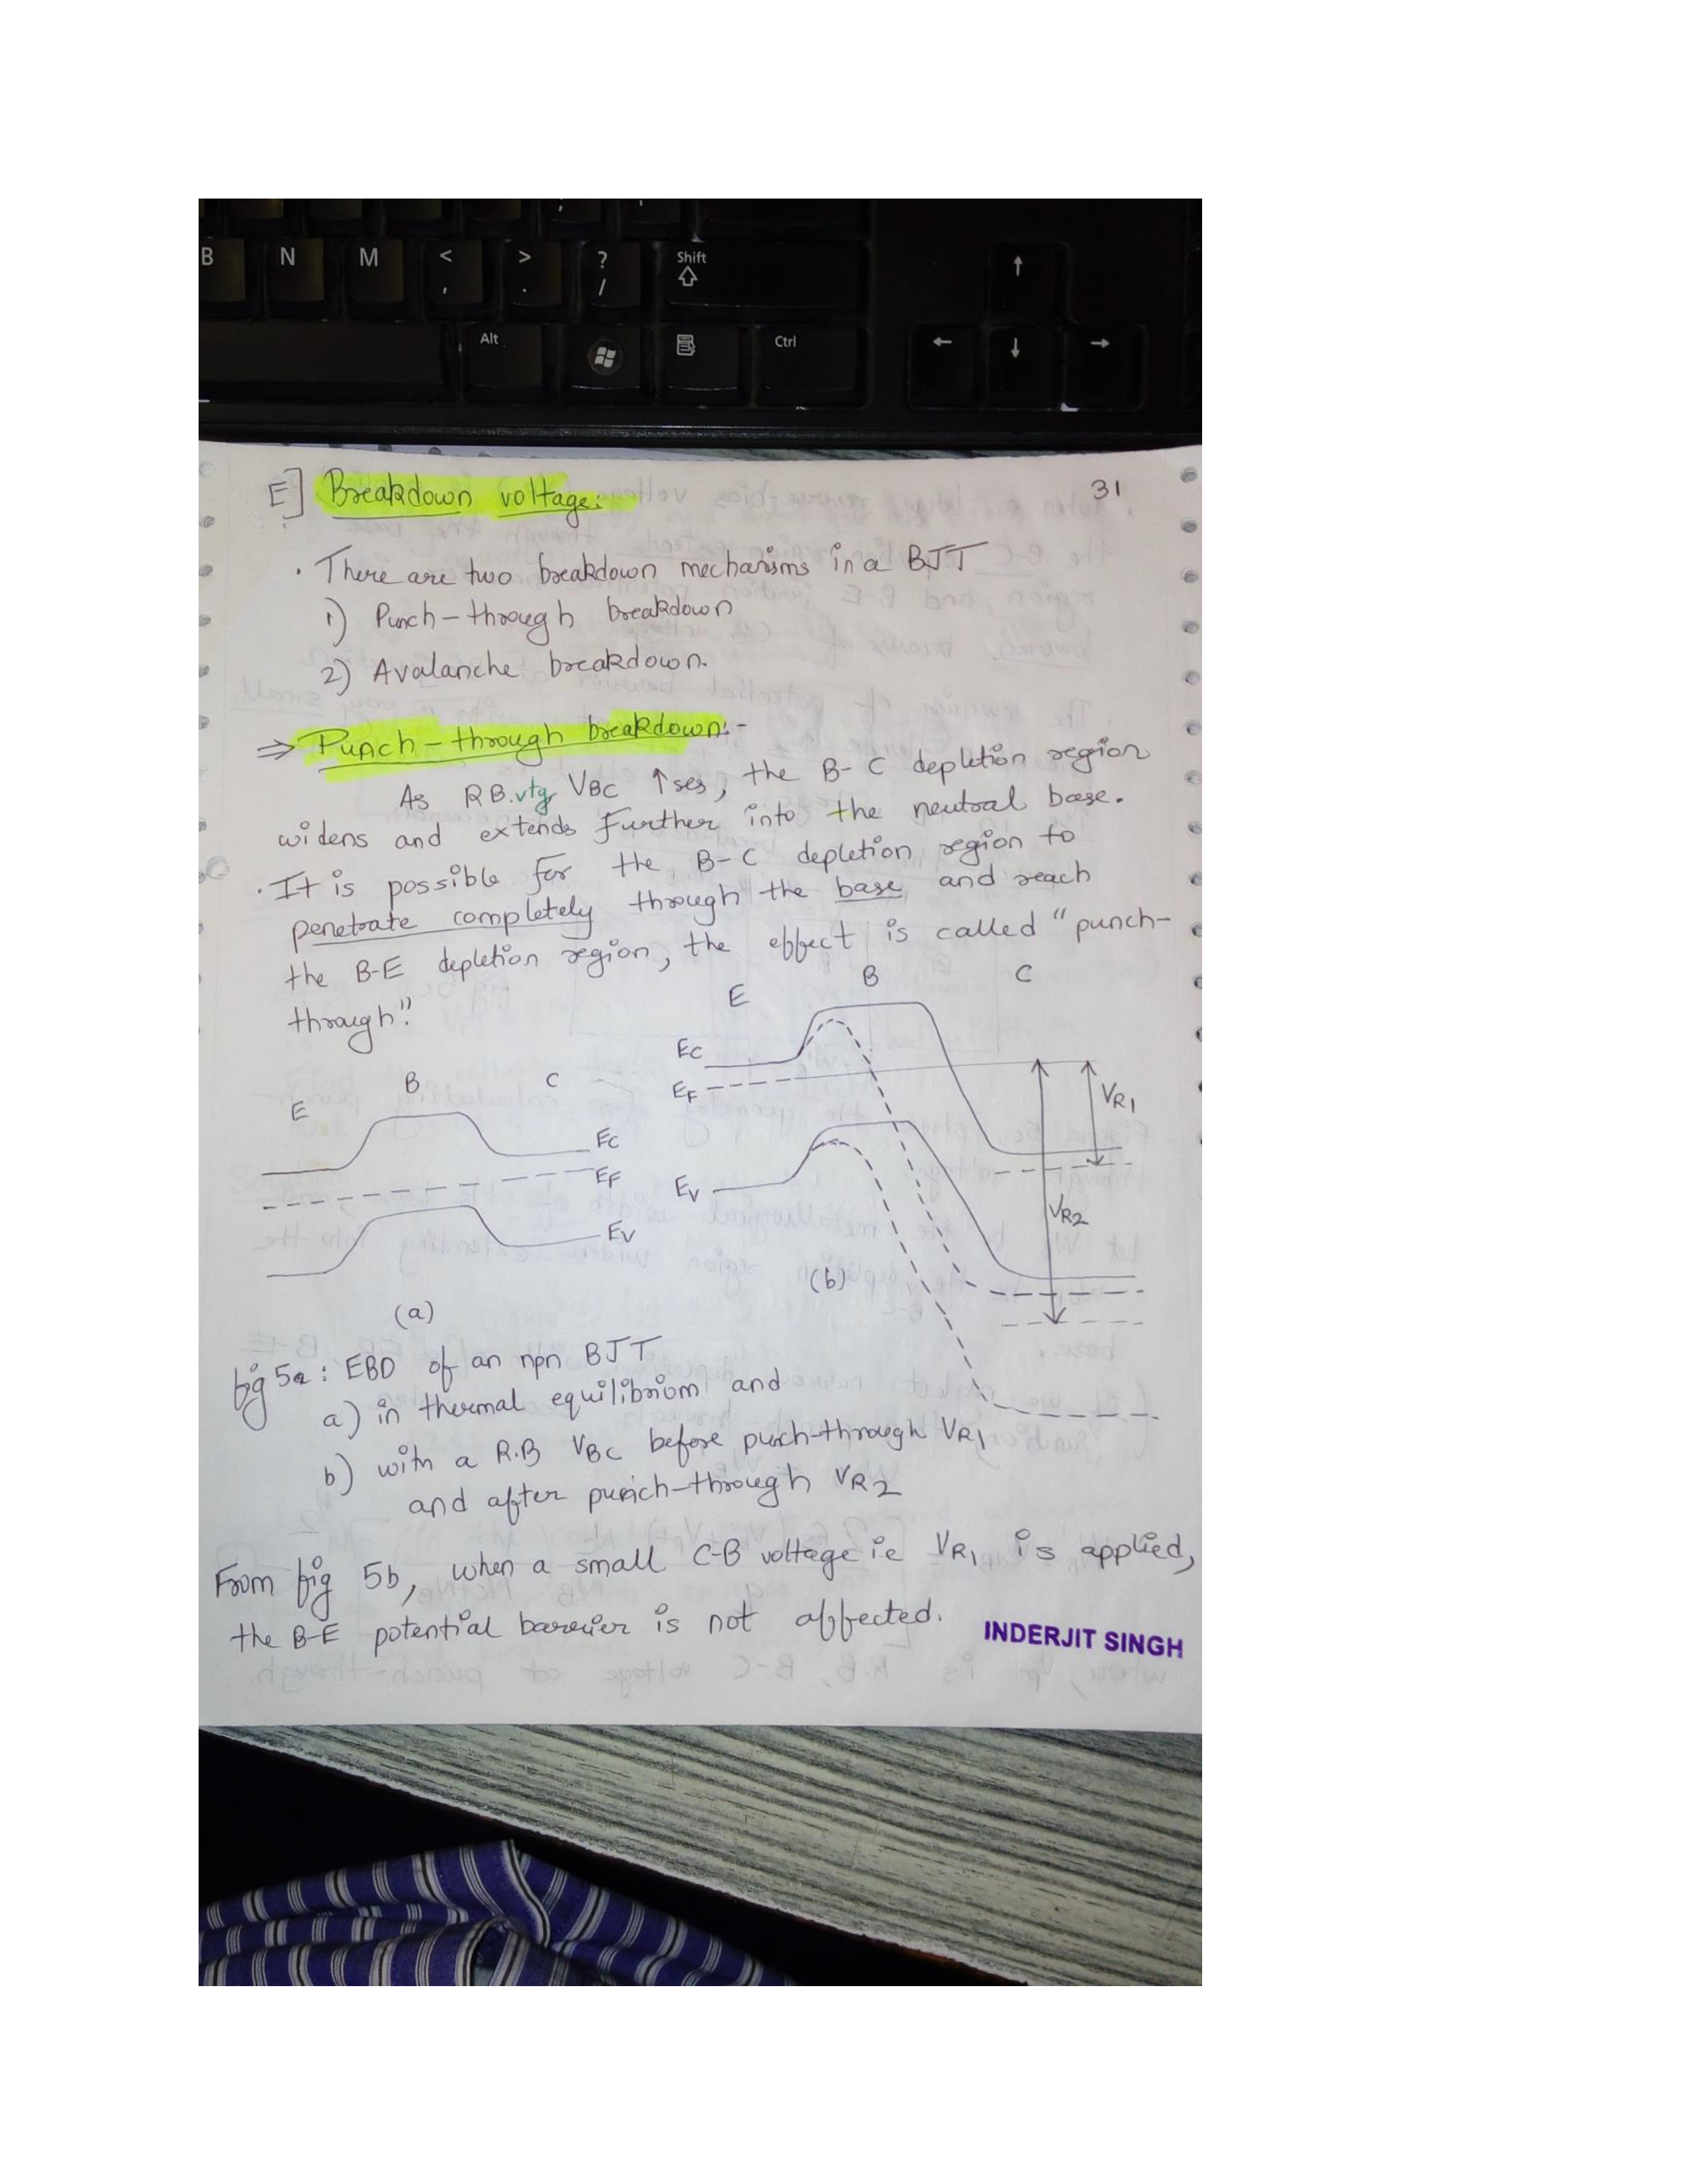 B N M < , > . ? / Shift ↑
Alt Ctrl ← ↓ →
E] Breakdown voltage:
31
· There are two breakdown mechanisms in a BJT
1) Punch-through breakdown
2) Avalanche breakdown.
⇒ Punch-through breakdown:-
As RB.vtg VBC ↑ses, the B-C depletion region
widens and extends further into the neutral base.
· It is possible for the B-C depletion region to
penetrate completely through the base and reach
the B-E depletion region, the effect is called "punch-
through".
E B C
EC
EF
EV
VR1
VR2
(b)
E B C
EC
EF
EV
(a)
fig 5a: EBD of an npn BJT
a) in thermal equilibriom and
b) with a R.B VBC before punch-through VR1
and after punch-through VR2
From fig 5b, when a small C-B voltage ie VR1 is applied,
the B-E potential barrier is not affected.
INDERJIT SINGH